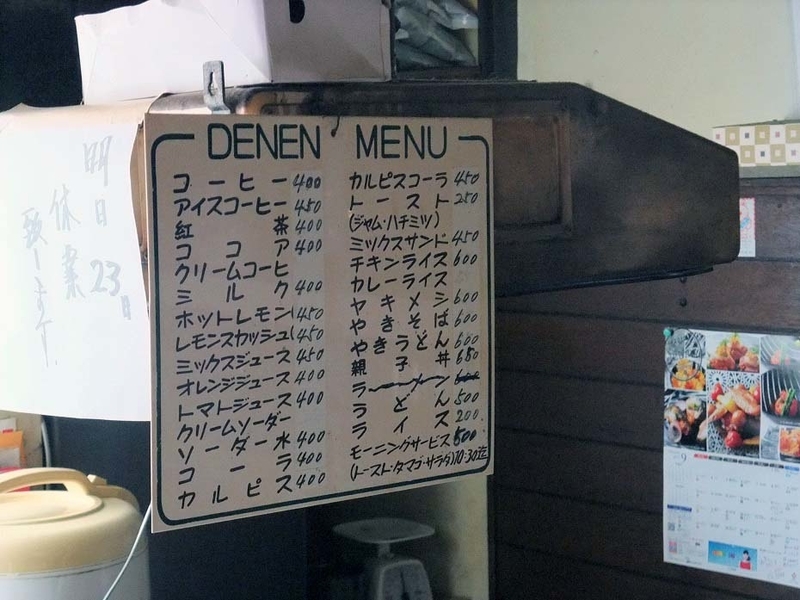 DENEN MENU
コーヒー 400
アイスコーヒー 450
紅茶 400
ココア 400
クリームコーヒ
ミルク 400
ホットレモン 450
レモンスカッシュ 450
ミックスジュース 450
オレンジジュース 400
トマトジュース 400
クリームソーダー
ソーダー水 400
コーラ 400
カルピス 400
カルピスコーラ 450
トースト 250
(ジャム・ハチミツ)
ミックスサンド 450
チキンライス 600
カレーライス
ヤキメシ 600
やきそば 600
やきうどん 600
親子丼 650
ラーメン 600
うどん 500
ライス 200
モーニングサービス 500
(トースト・タマゴ・サラダ) 10:30迄
明日23日
休業
致します。
9